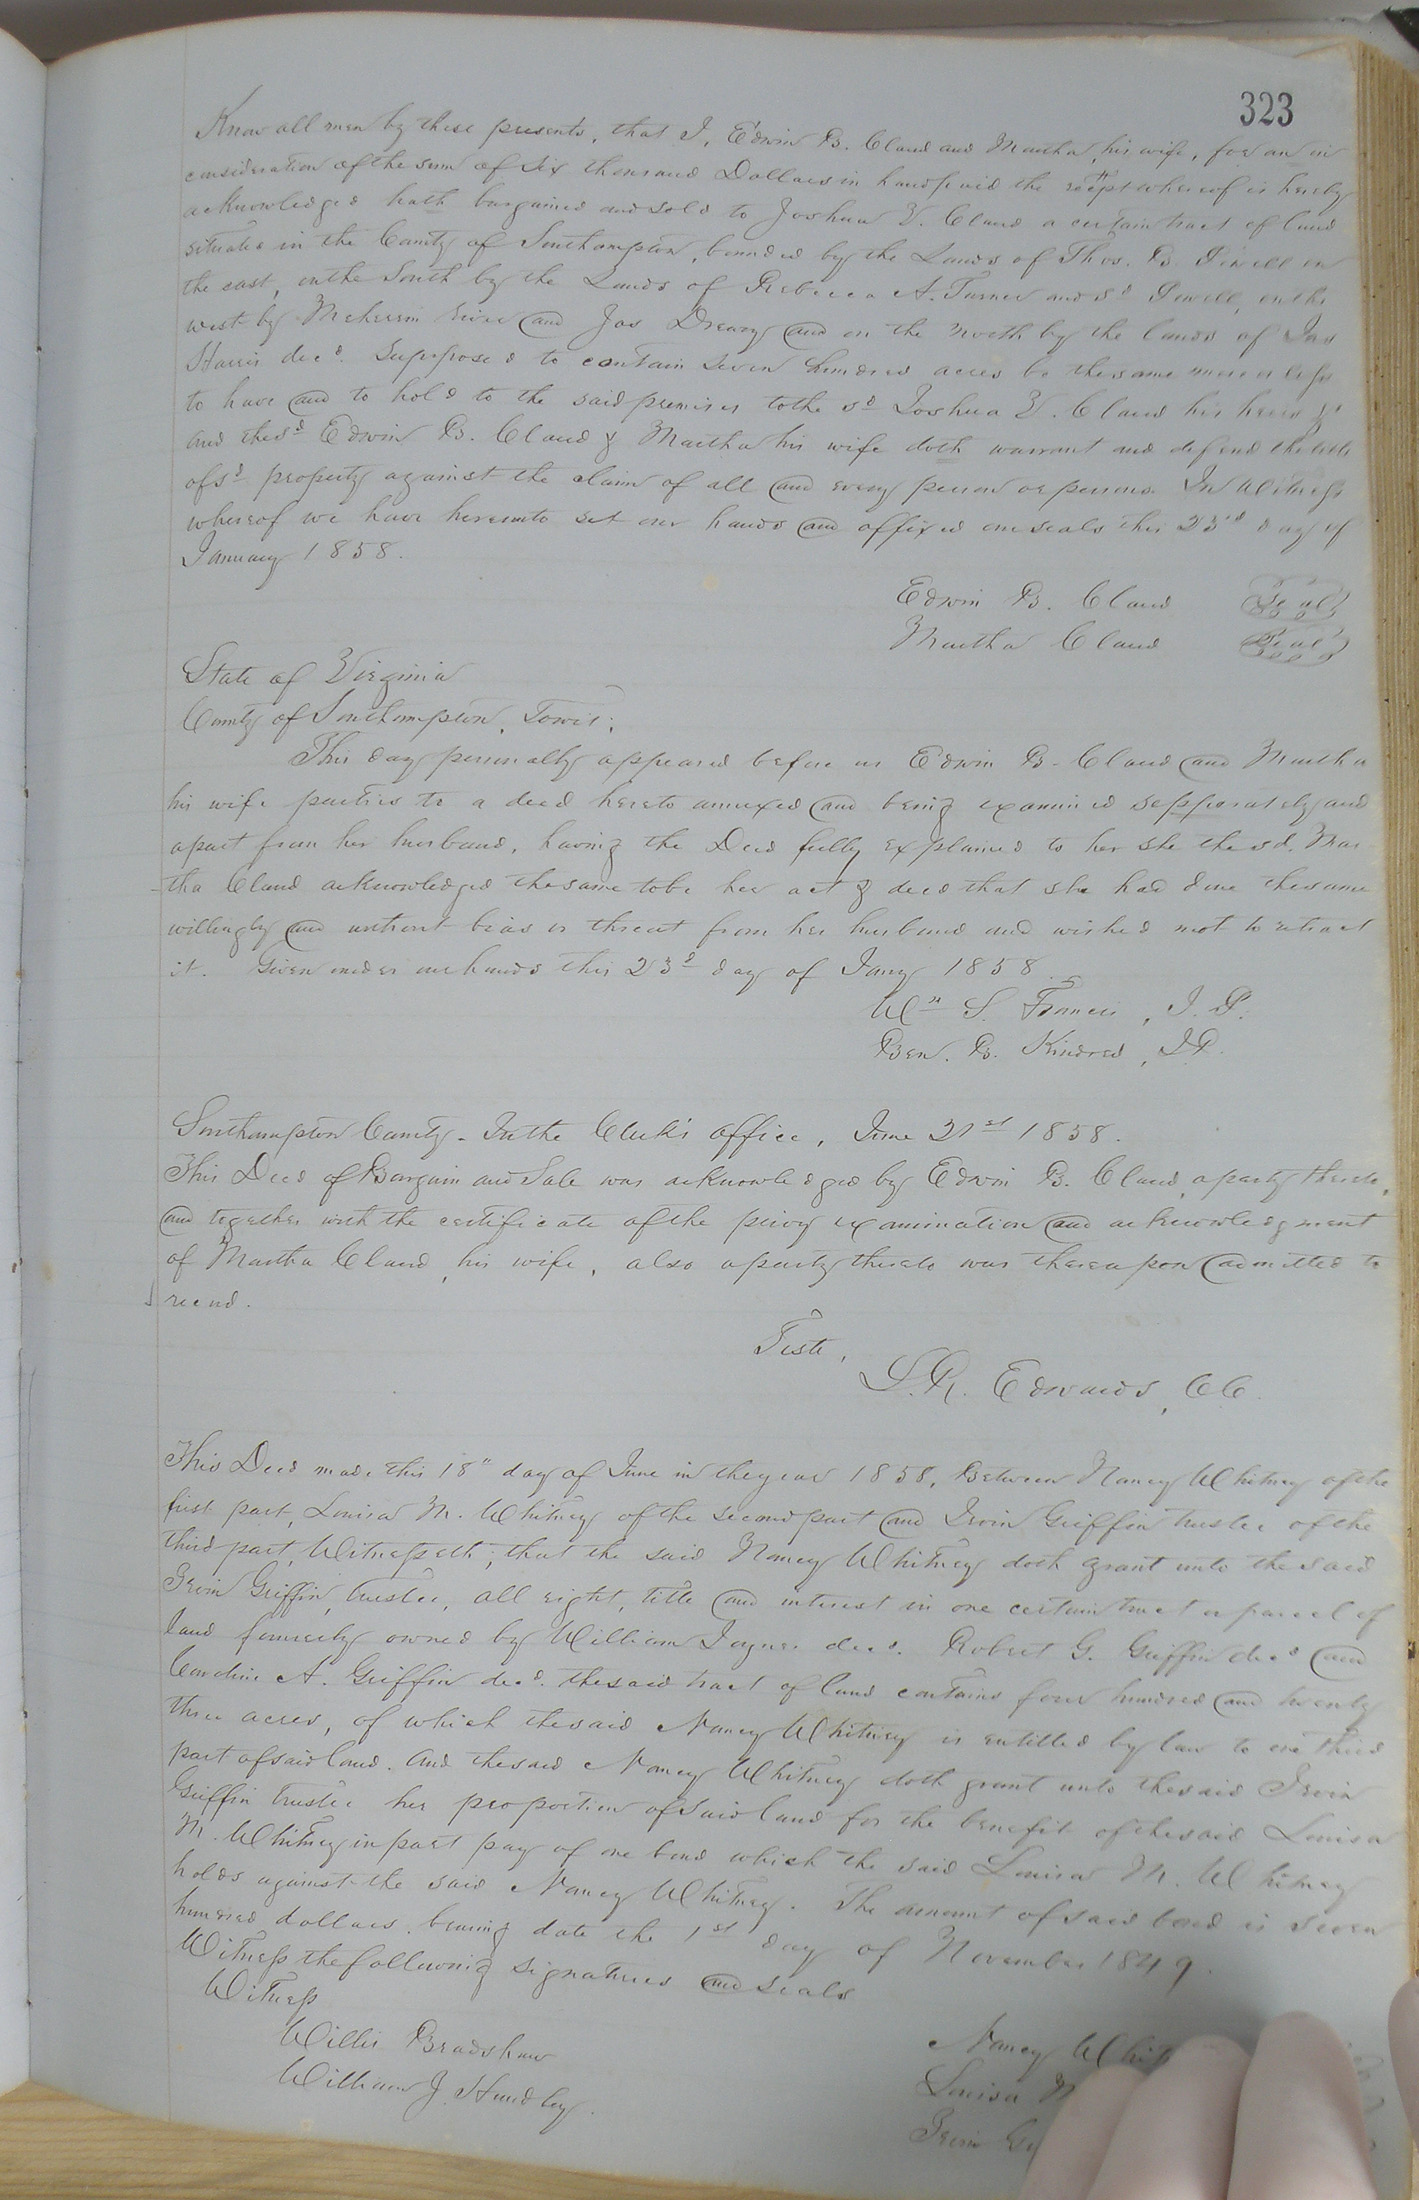 323
Know all men by these presents, that I, Edwin B. Claud and Martha, his wife, for an in
consideration of the sum of six thousand Dollars in hand paid the receipt whereof is hereby
acknowledged hath bargained and sold to Joshua V. Claud a certain tract of land
situated in the County of Southampton, bounded by the Lands of Thos. B. Powell on
the east, on the South by the Lands of Rebecca A. Turner and sd Powell, on the
west by Meherrin river and Jas Drewry and on the north by the lands of Jas
Harris decd. Supposed to contain seven hundred acres be the same more or less
to have and to hold to the said premises to the sd Joshua V. Claud his heirs &c
and the sd Edwin B. Claud & Martha his wife doth warrant and defend the title
of sd property against the claim of all and every person or persons. In Witness
whereof we have hereunto set our hands and affixed our seals this 23rd day of
January 1858.
Edwin B. Claud Seal
Martha Claud Seal
State of Virginia
County of Southampton, Towit;
This day personally appeared before us Edwin B. Claud and Martha
his wife parties to a deed hereto annexed and being examined sepperately and
apart from her husband, having the Deed fully explained to her she the sd. Mar
tha Claud acknowledged the same to be her act & deed that she had done the same
willingly and without bias or threat from her husband and wished not to retract
it. Given under our hands this 23d day of Jany 1858.
Wm S. Francis, J. P.
Ben. B. Kindred, J.P.
Southampton County - In the Clerk's office, June 21st 1858.
This Deed of Bargain and Sale was acknowledged by Edwin B. Claud, a party thereto,
and together with the certificate of the privy examination and acknowledgment
of Martha Claud, his wife, also a party thereto was thereupon admitted to
record.
Teste,
L. R. Edwards, CC.
This Deed made this 18" day of June in the year 1858, Between Nancy Whitney of the
first part, Louisa M. Whitney of the second part and Irvin Griffin trustee of the
third part, Witnesseth; that the said Nancy Whitney doth grant unto the said
Irvin Griffin, trustee, all right, title and interest in one certain tract or parcel of
land formerly owned by William Joyner decd. Robert G. Griffin decd and
Caroline A. Griffin decd. the said tract of land contains four hundred and twenty
three acres, of which the said Nancy Whitney is entitled by law to one third
part of said land. And the said Nancy Whitney doth grant unto the said Irvin
Griffin trustee her proportion of said land for the benefit of the said Louisa
M. Whitney in part pay of one bond which the said Louisa M. Whitney
holds against the said Nancy Whitney. The amount of said bond is seven
hundred dollars bearing date the 1st day of November 1849.
Witness the following signatures and seals
Witness
Willis Bradshaw
William J. Hundley.
Nancy Whit
Louisa M
Irvin Gr